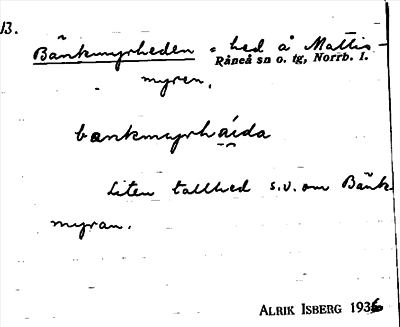 13.
Bänkmyrheden = hed å Mattis-
Råneå sn o. tg, Norrb. l.
myren.
bænkmyrhaida
Liten tallhed s.v. om Bänk
myran.
ALRIK ISBERG 1936